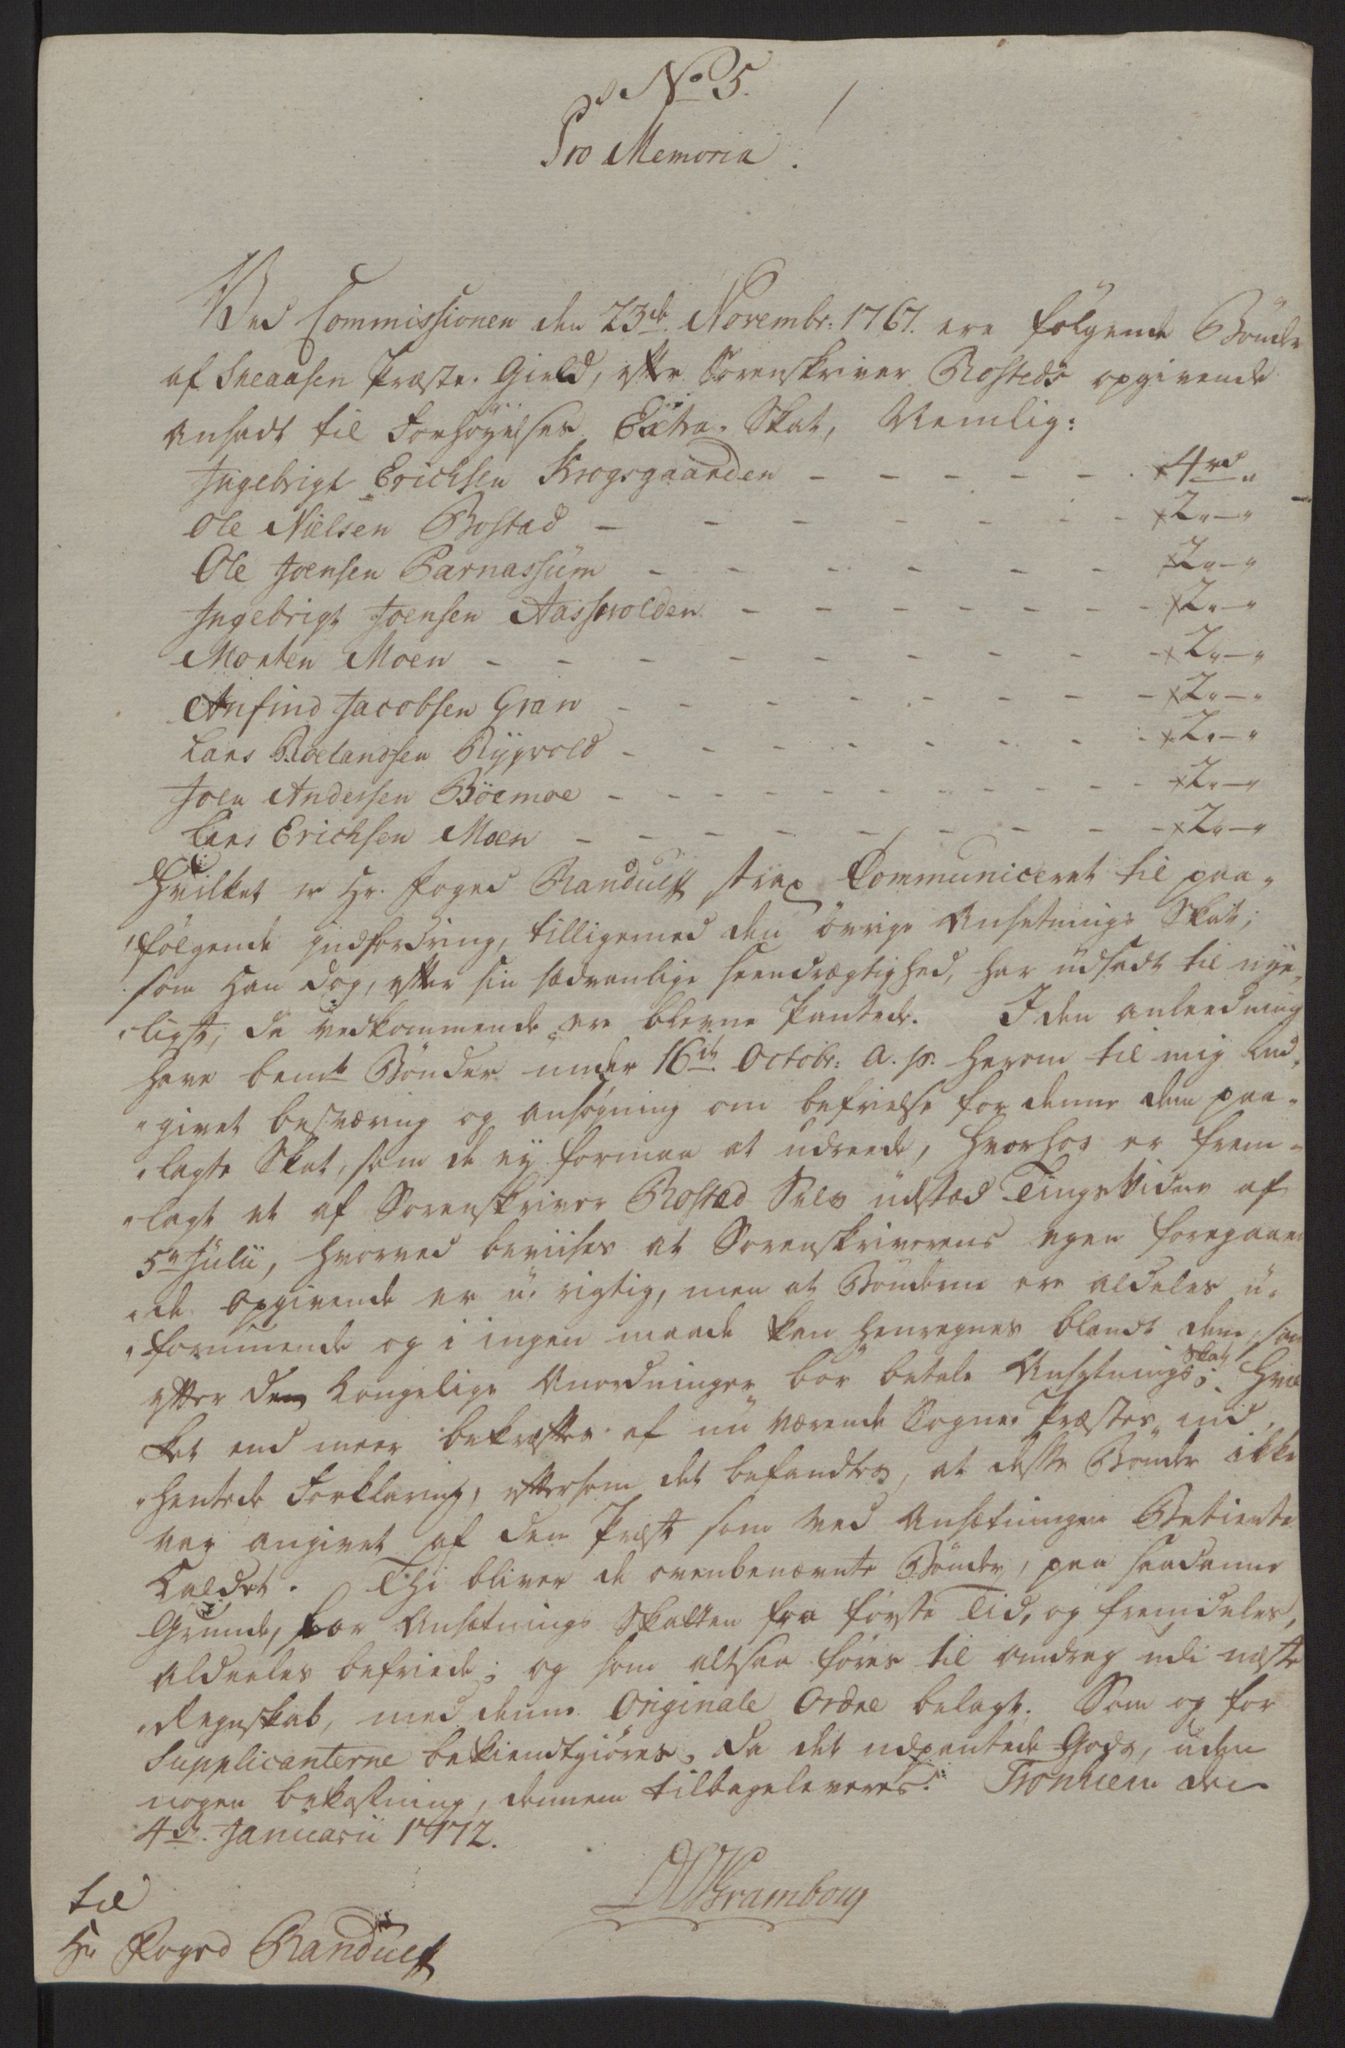 No 5.
Pro Memoria!
Ved Commissionen den 23de Novembr: 1767. ere fölgende Bönder
af Sneaasen Præste-Gield, efter Sorenskriver Rosteds opgivende
ansadt til Forhöyelses Extra-Skat, Nemlig:
Ingebrigt Erichsen Krogsgaarden - - - - - 4 rd "
Ole Nielsen Bostad - - - - - - - 2 " - "
Ole Joensen Parnassüm - - - - - - - 2 " - "
Ingebrigt Joensen Aasswolden - - - - - - 2 " - "
Morten Moen - - - - - - - - - 2 " - "
Anfind Jacobsen Gran - - - - - - - - 2 " - "
Lars Roelandsen Rygvold - - - - - - - 2 " - "
Joen Andersen Böemoe - - - - - - - - 2 " - "
Lars Erichsen Moen - - - - - - - - 2 " - "
Hvilket er Hr. Foged Randulff strax Communiceret til paa-
fölgende indfordring, tilligemed den övrige Ansetnings Skat;
som Han dog, efter sin sædvanlige seendrægtighed, har udsadt til nye-
ligst, da vedkommende ere blevne Pantede. I den anleedning
have bemte Bönder under 16de Octobr: a. p. herom til mig ind-
givet besværing og ansøgning om befrielse for denne dem paa-
lagte Skat, som de ey formaa at udreede, hvorhos er frem-
lagt et af Sorenskriver Rosted Selv üdstæd Tingsvidne af
5te Julii, hvorved beviises at Sorenskriverens egen foregaaen-
de Opgivende er ü-rigtig, men at Bönderne ere aldeles ü-
formuende og i ingen maade kan henregnes blandt dem, som
efter den Kongelige Anordninger bör betale Ansetnings Skat; Hvil-
ket end meer bekræftes af nü værende Sogne-Præstes ind-
hentede Forklaring, eftersom det befandtes, at disse Bönder ikke
var angivet af den Præst som ved Ansætningen Betiente
Kaldet. Thi bliver de ovenbenævnte Bönder, paa saadanne
Grunde, for Ansætnings Skatten fra første Tid, og fremdeles,
Aldeeles befriede; og som altsaa føres til Omdrag udi næste
Regnskab, med denne Originale Ordre belagt. Som og for
Supplicanterne bekiendtgiöres, da det udpantede Gods, uden
nogen bekostning, dennem tilbageleveres. Tronhiem den
4de Januarii 1772.
Til
Hr Foged Randulff